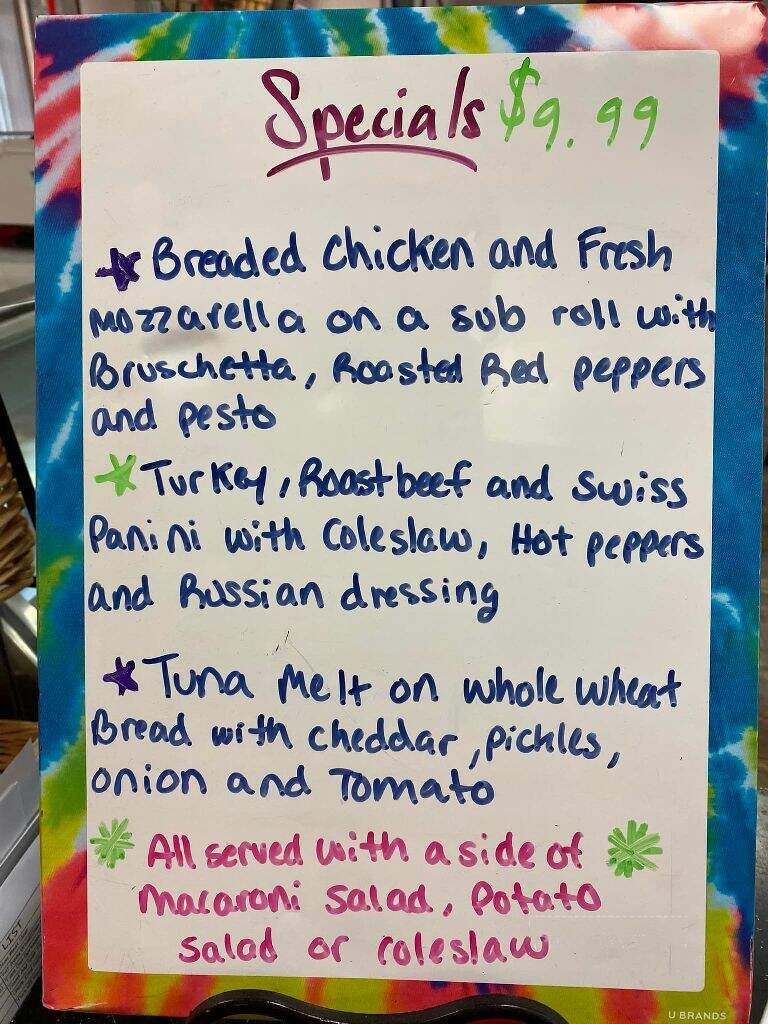 Specials $9.99
Breaded Chicken and Fresh
Mozzarella on a sub roll with
Bruschetta, Roasted Red peppers
and pesto
Turkey, Roastbeef and Swiss
Panini with Coleslaw, Hot peppers
and Russian dressing
Tuna Melt on whole wheat
Bread with cheddar, pickles,
onion and Tomato
All served with a side of
Macaroni Salad, Potato
Salad or coleslaw
LIST
U BRANDS